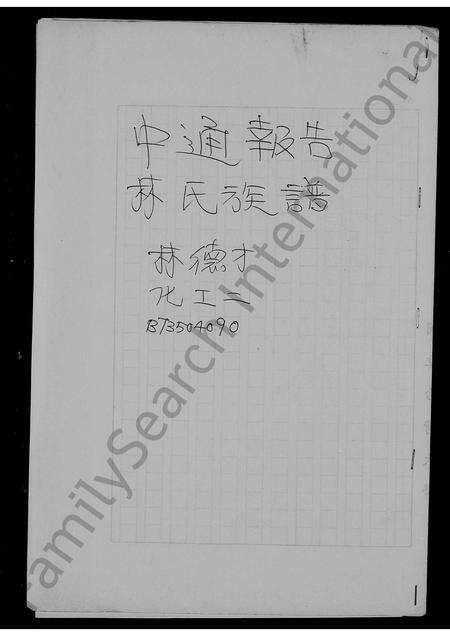 中通報告
林氏族譜
林德才
化工二
B73504090
FamilySearch International